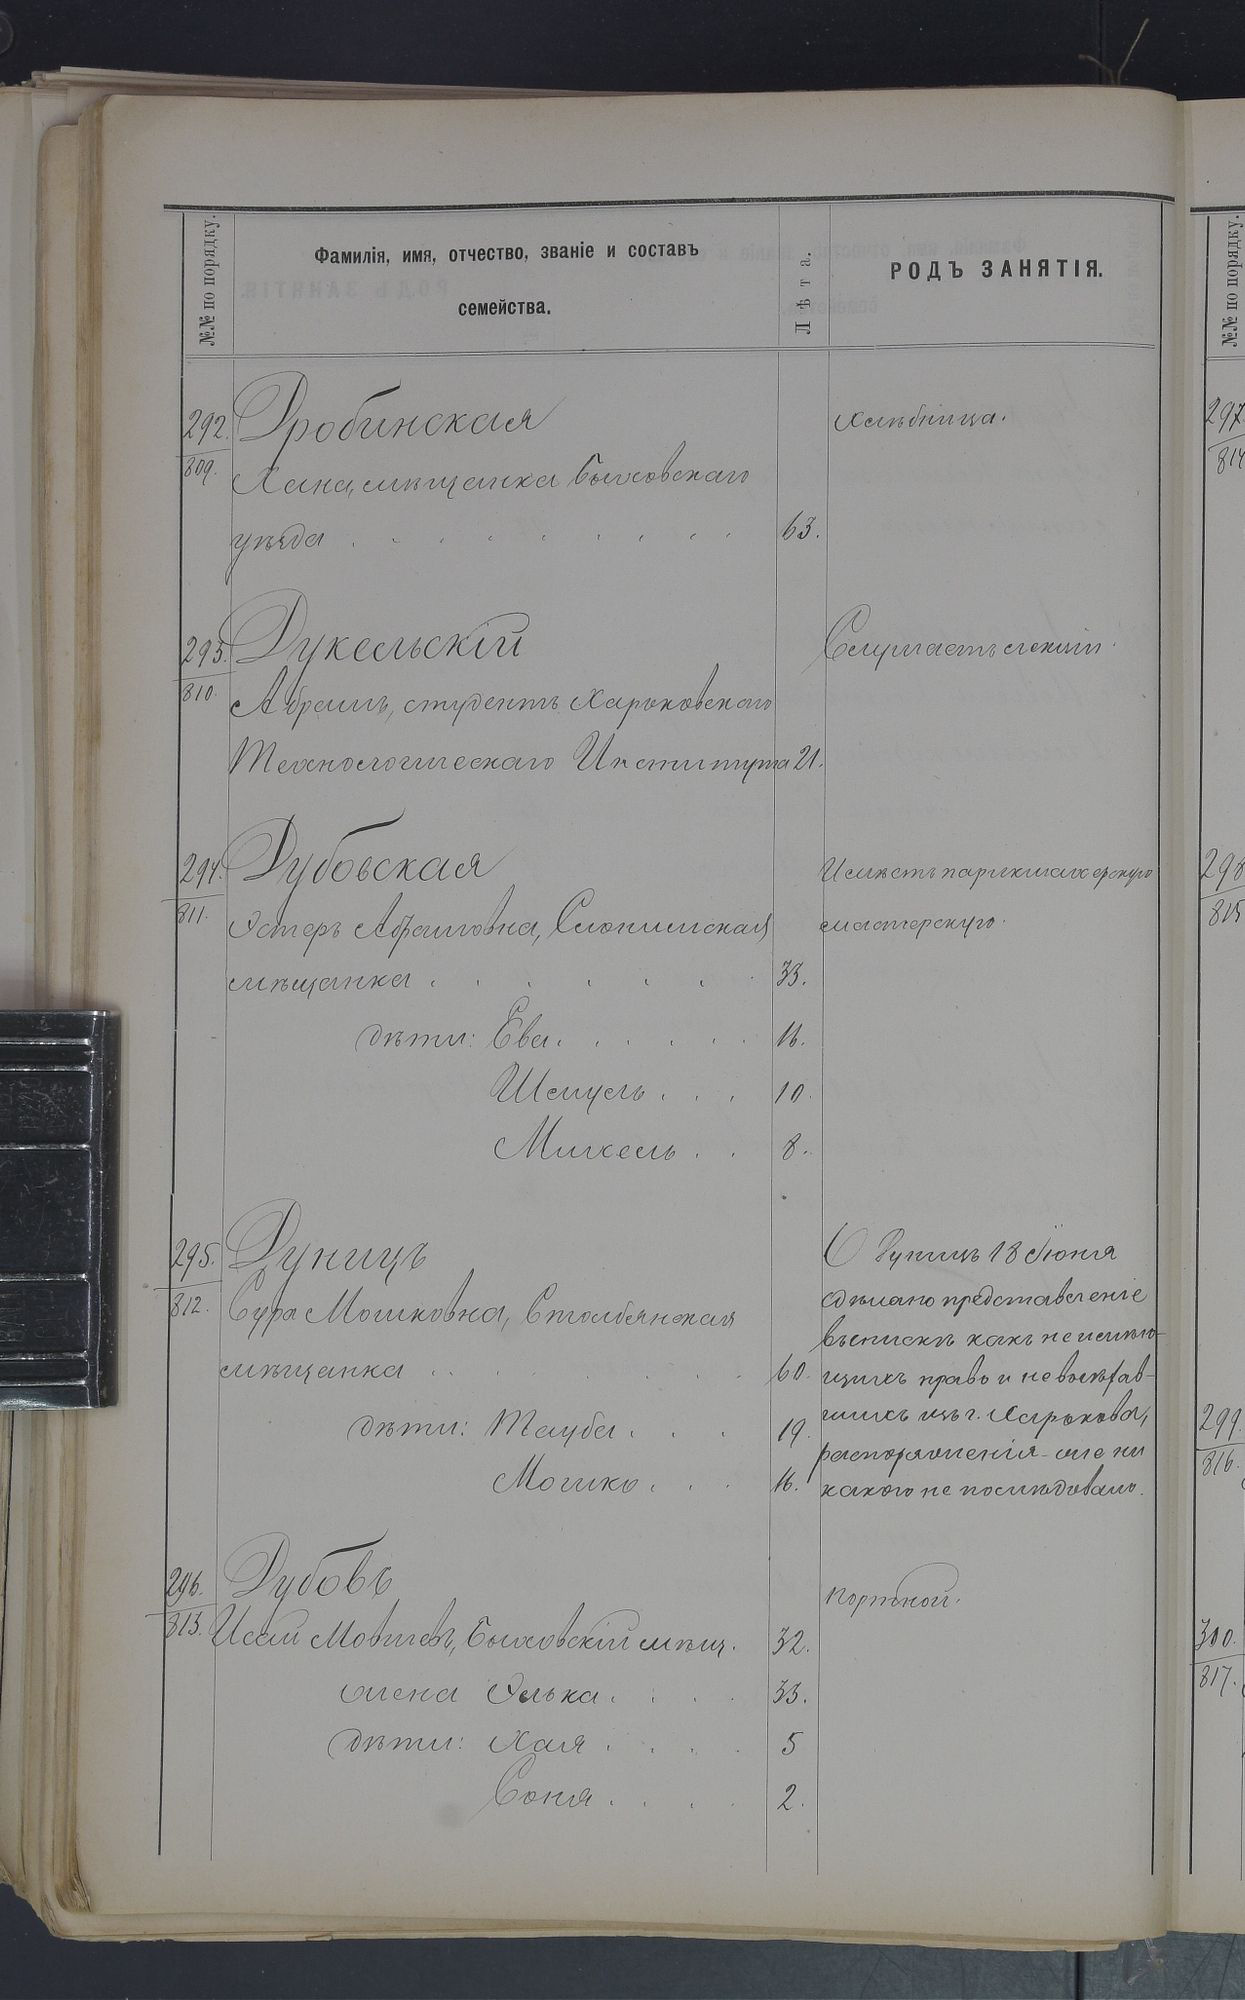 №№ по порядку.
Фамилія, имя, отчество, званіе и составъ
семейства.
Лѣта.
РОДЪ ЗАНЯТІЯ.
292. Дробинская
809.
Хлѣбница.
Хана, мѣщанка Быховскаго
уѣзда . . . . . . . . . 63.
293. Дукельскій
810.
Слушаетъ лекціи.
Абрамъ, студентъ Харьковскаго
Технологическаго Института 21.
294. Дубовская
811.
Имѣетъ парикмахерскую
Эстеръ Абрамовна, Слонимская
мастерскую.
мѣщанка . . . . . . . 33.
дѣти: Ева . . . . . 16.
Шмуель . . . 10.
Михель . . 8.
295. Дуницъ
812.
О Дуницъ 18 Іюня
Сура Мошковна, Столбянская
сдѣлано представленіе
мѣщанка . . . . . . . 60.
выпискѣ какъ не имѣю-
щихъ право и не выѣхав-
дѣти: Тауба . . . 19.
шихъ изъ г. Харькова,
распоряженія-же ни
Мошко . . . 16.
какого не послѣдовало.
296. Дубовъ
813.
портной.
Исай Мовшевъ, Быховскій мѣщ. 32.
жена Элька . . . . 33.
дѣти: Хая . . . . 5
Соня . . . . 2.
№№ по порядку.
297
814
298
815
299.
816.
300.
817.